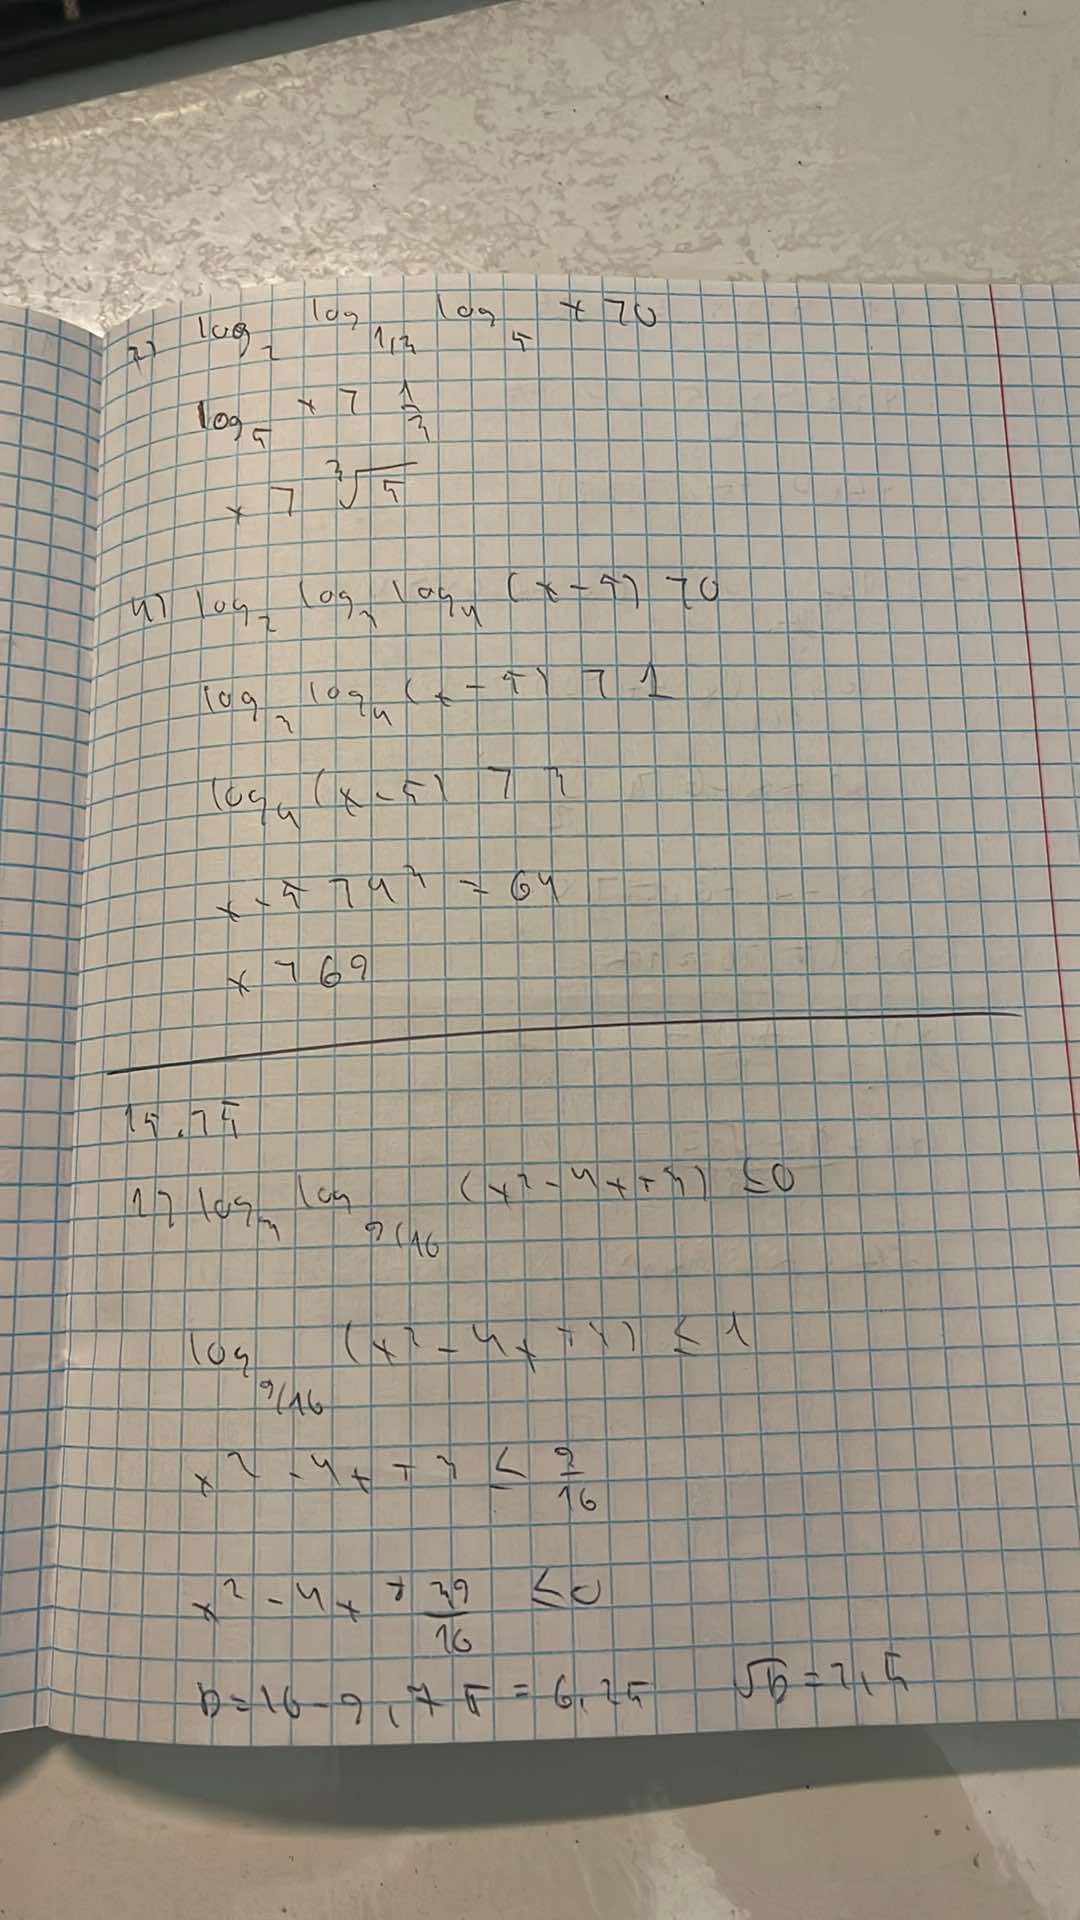 3) log₂ log₁,₃ log₅ x > 0
log₅ x > 1/3
x > ∛5
4) log₂ log₃ log₄ (x - 5) > 0
log₃ log₄ (x - 5) > 1
log₄ (x - 5) > 3
x - 5 > 4³ = 64
x > 69
15.75
1) log₃ log₉/₁₆ (x² - 4x + 3) ≤ 0
log₉/₁₆ (x² - 4x + 3) ≤ 1
x² - 4x + 3 ≤ 9/16
x² - 4x + 39/16 ≤ 0
D = 16 - 9,75 = 6,25 √D = 2,5